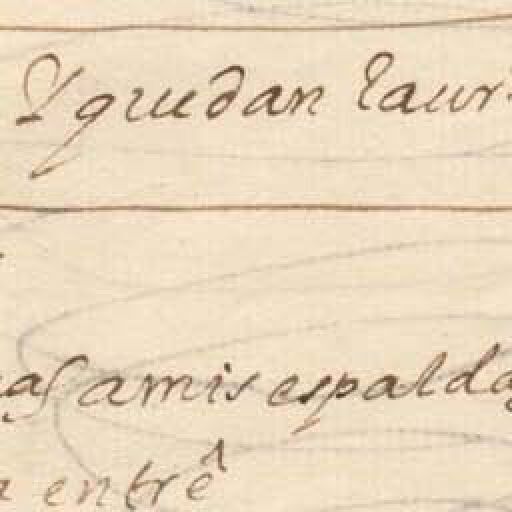 Y quedan Laur
as amis espalda
entrê